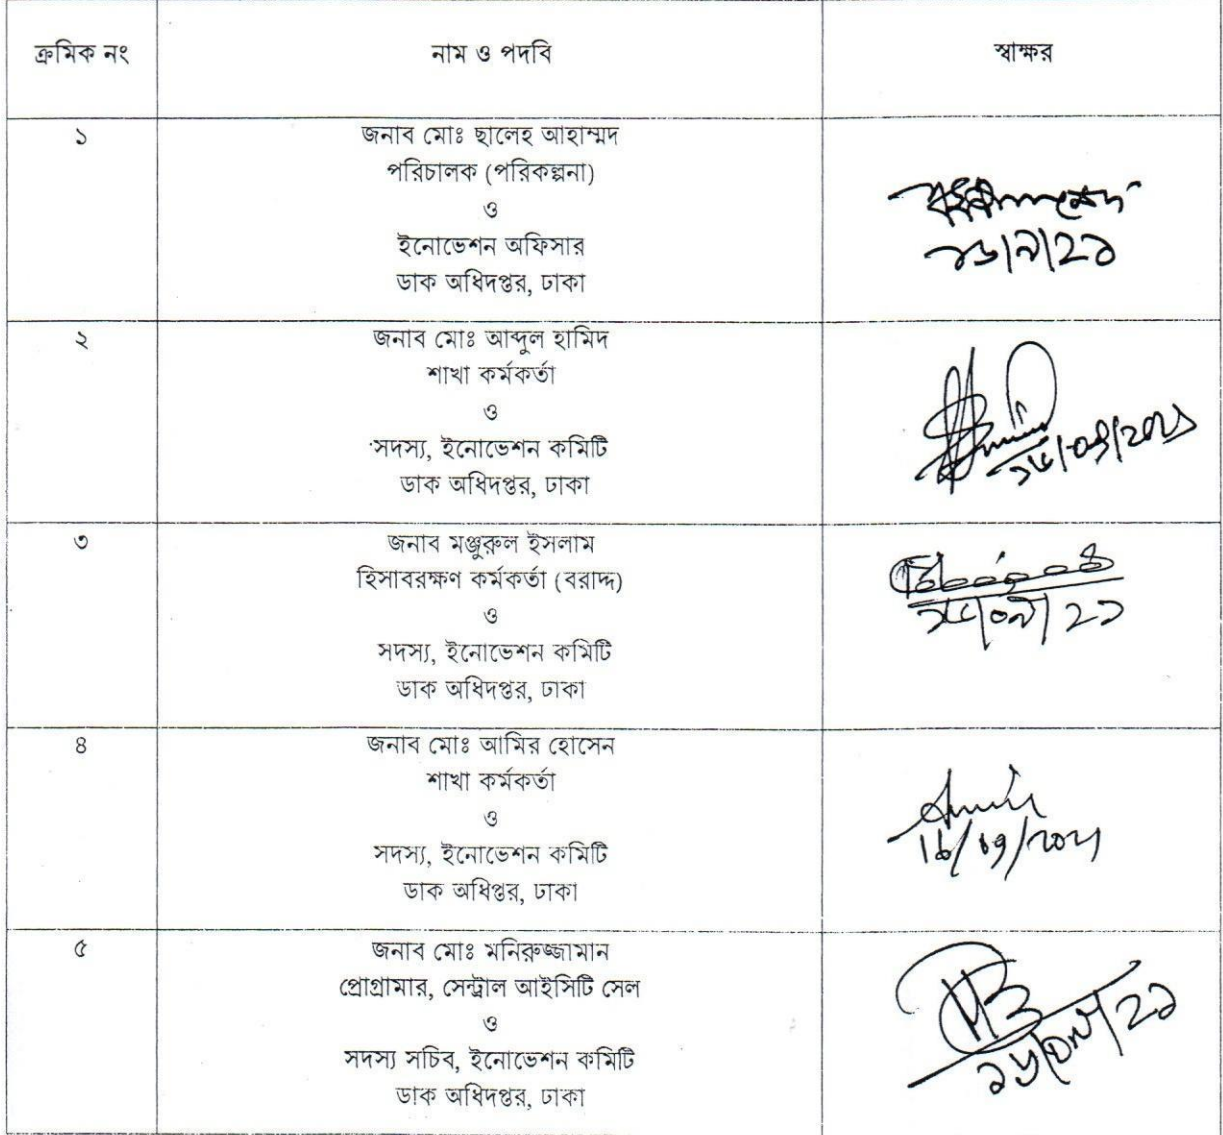 ক্রমিক নং নাম ও পদবি স্বাক্ষর
১ জনাব মোঃ ছালেহ আহাম্মদ
পরিচালক (পরিকল্পনা)
ও
ইনোভেশন অফিসার
ডাক অধিদপ্তর, ঢাকা
১৬|৯|২১
২ জনাব মোঃ আব্দুল হামিদ
শাখা কর্মকর্তা
ও
সদস্য, ইনোভেশন কমিটি
ডাক অধিদপ্তর, ঢাকা
৩ জনাব মঞ্জুরুল ইসলাম
হিসাবরক্ষণ কর্মকর্তা (বরাদ্দ)
ও
সদস্য, ইনোভেশন কমিটি
ডাক অধিদপ্তর, ঢাকা
১৬|০৯|২১
৪ জনাব মোঃ আমির হোসেন
শাখা কর্মকর্তা
ও
সদস্য, ইনোভেশন কমিটি
ডাক অধিপ্তর, ঢাকা
16/09/2021
৫ জনাব মোঃ মনিরুজ্জামান
প্রোগ্রামার, সেন্ট্রাল আইসিটি সেল
ও
সদস্য সচিব, ইনোভেশন কমিটি
ডাক অধিদপ্তর, ঢাকা
১৬|০৯|২১